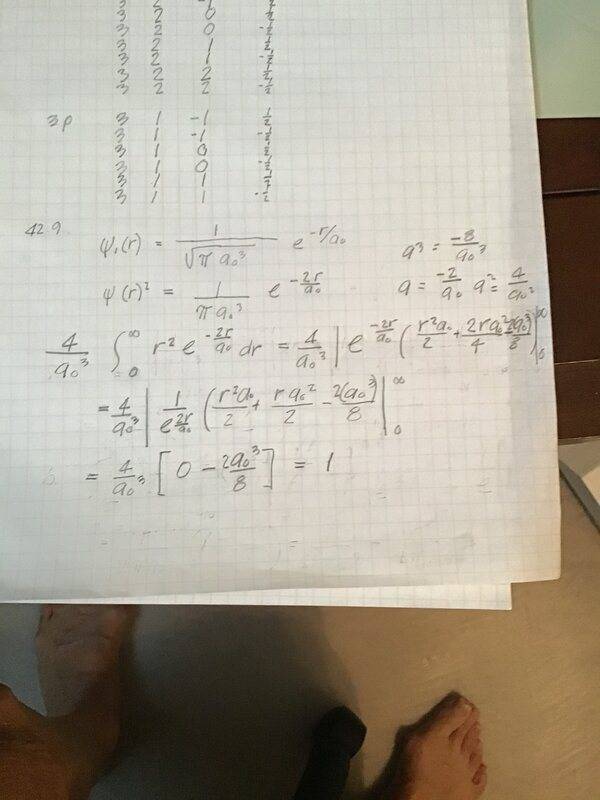 3 2 -1 1/2
3 2 0 1/2
3 2 0 -1/2
3 2 1 1/2
3 2 1 -1/2
3 2 2 1/2
3 2 2 -1/2
3p 3 1 -1 1/2
3 1 -1 -1/2
3 1 0 1/2
3 1 0 -1/2
3 1 1 1/2
3 1 1 -1/2
42 9 ψ₁(r) = 1/√(π a₀³) e^(-r/a₀) a³ = -8/a₀³
ψ(r)² = 1/(π a₀³) e^(-2r/a₀) a = -2/a₀ a² = 4/a₀²
4/a₀³ ∫₀^∞ r² e^(-2r/a₀) dr = 4/a₀³ | e^(-2r/a₀) (r²a₀/2 + 2ra₀²/4 - 2a₀³/8) |₀^∞
= 4/a₀³ | 1/e^(2r/a₀) (r²a₀/2 + ra₀²/2 - 2(a₀³)/8) |₀^∞
= 4/a₀³ [0 - 2a₀³/8] = 1